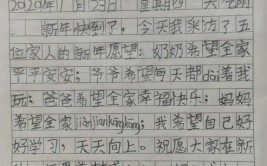 2020年1月23日 星期四 天气晴
新年快到了，今天我采访了五
位家人的新年愿望：奶奶希望全家
平平安安；爷爷希望每天都dài着我
玩；爸爸希望全家幸福快乐；妈妈
希望全家jiànjiànkāngkāng；我希望自己好
好学习，天天向上。祝愿大家在新